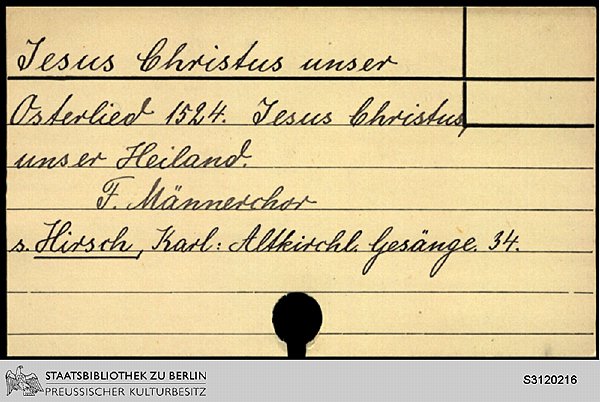 Jesus Christus unser
Osterlied 1524. Jesus Christus,
unser Heiland.
F. Männerchor
s. Hirsch, Karl: Altkirchl. Gesänge. 34.
STAATSBIBLIOTHEK ZU BERLIN
PREUSSISCHER KULTURBESITZ
S3120216